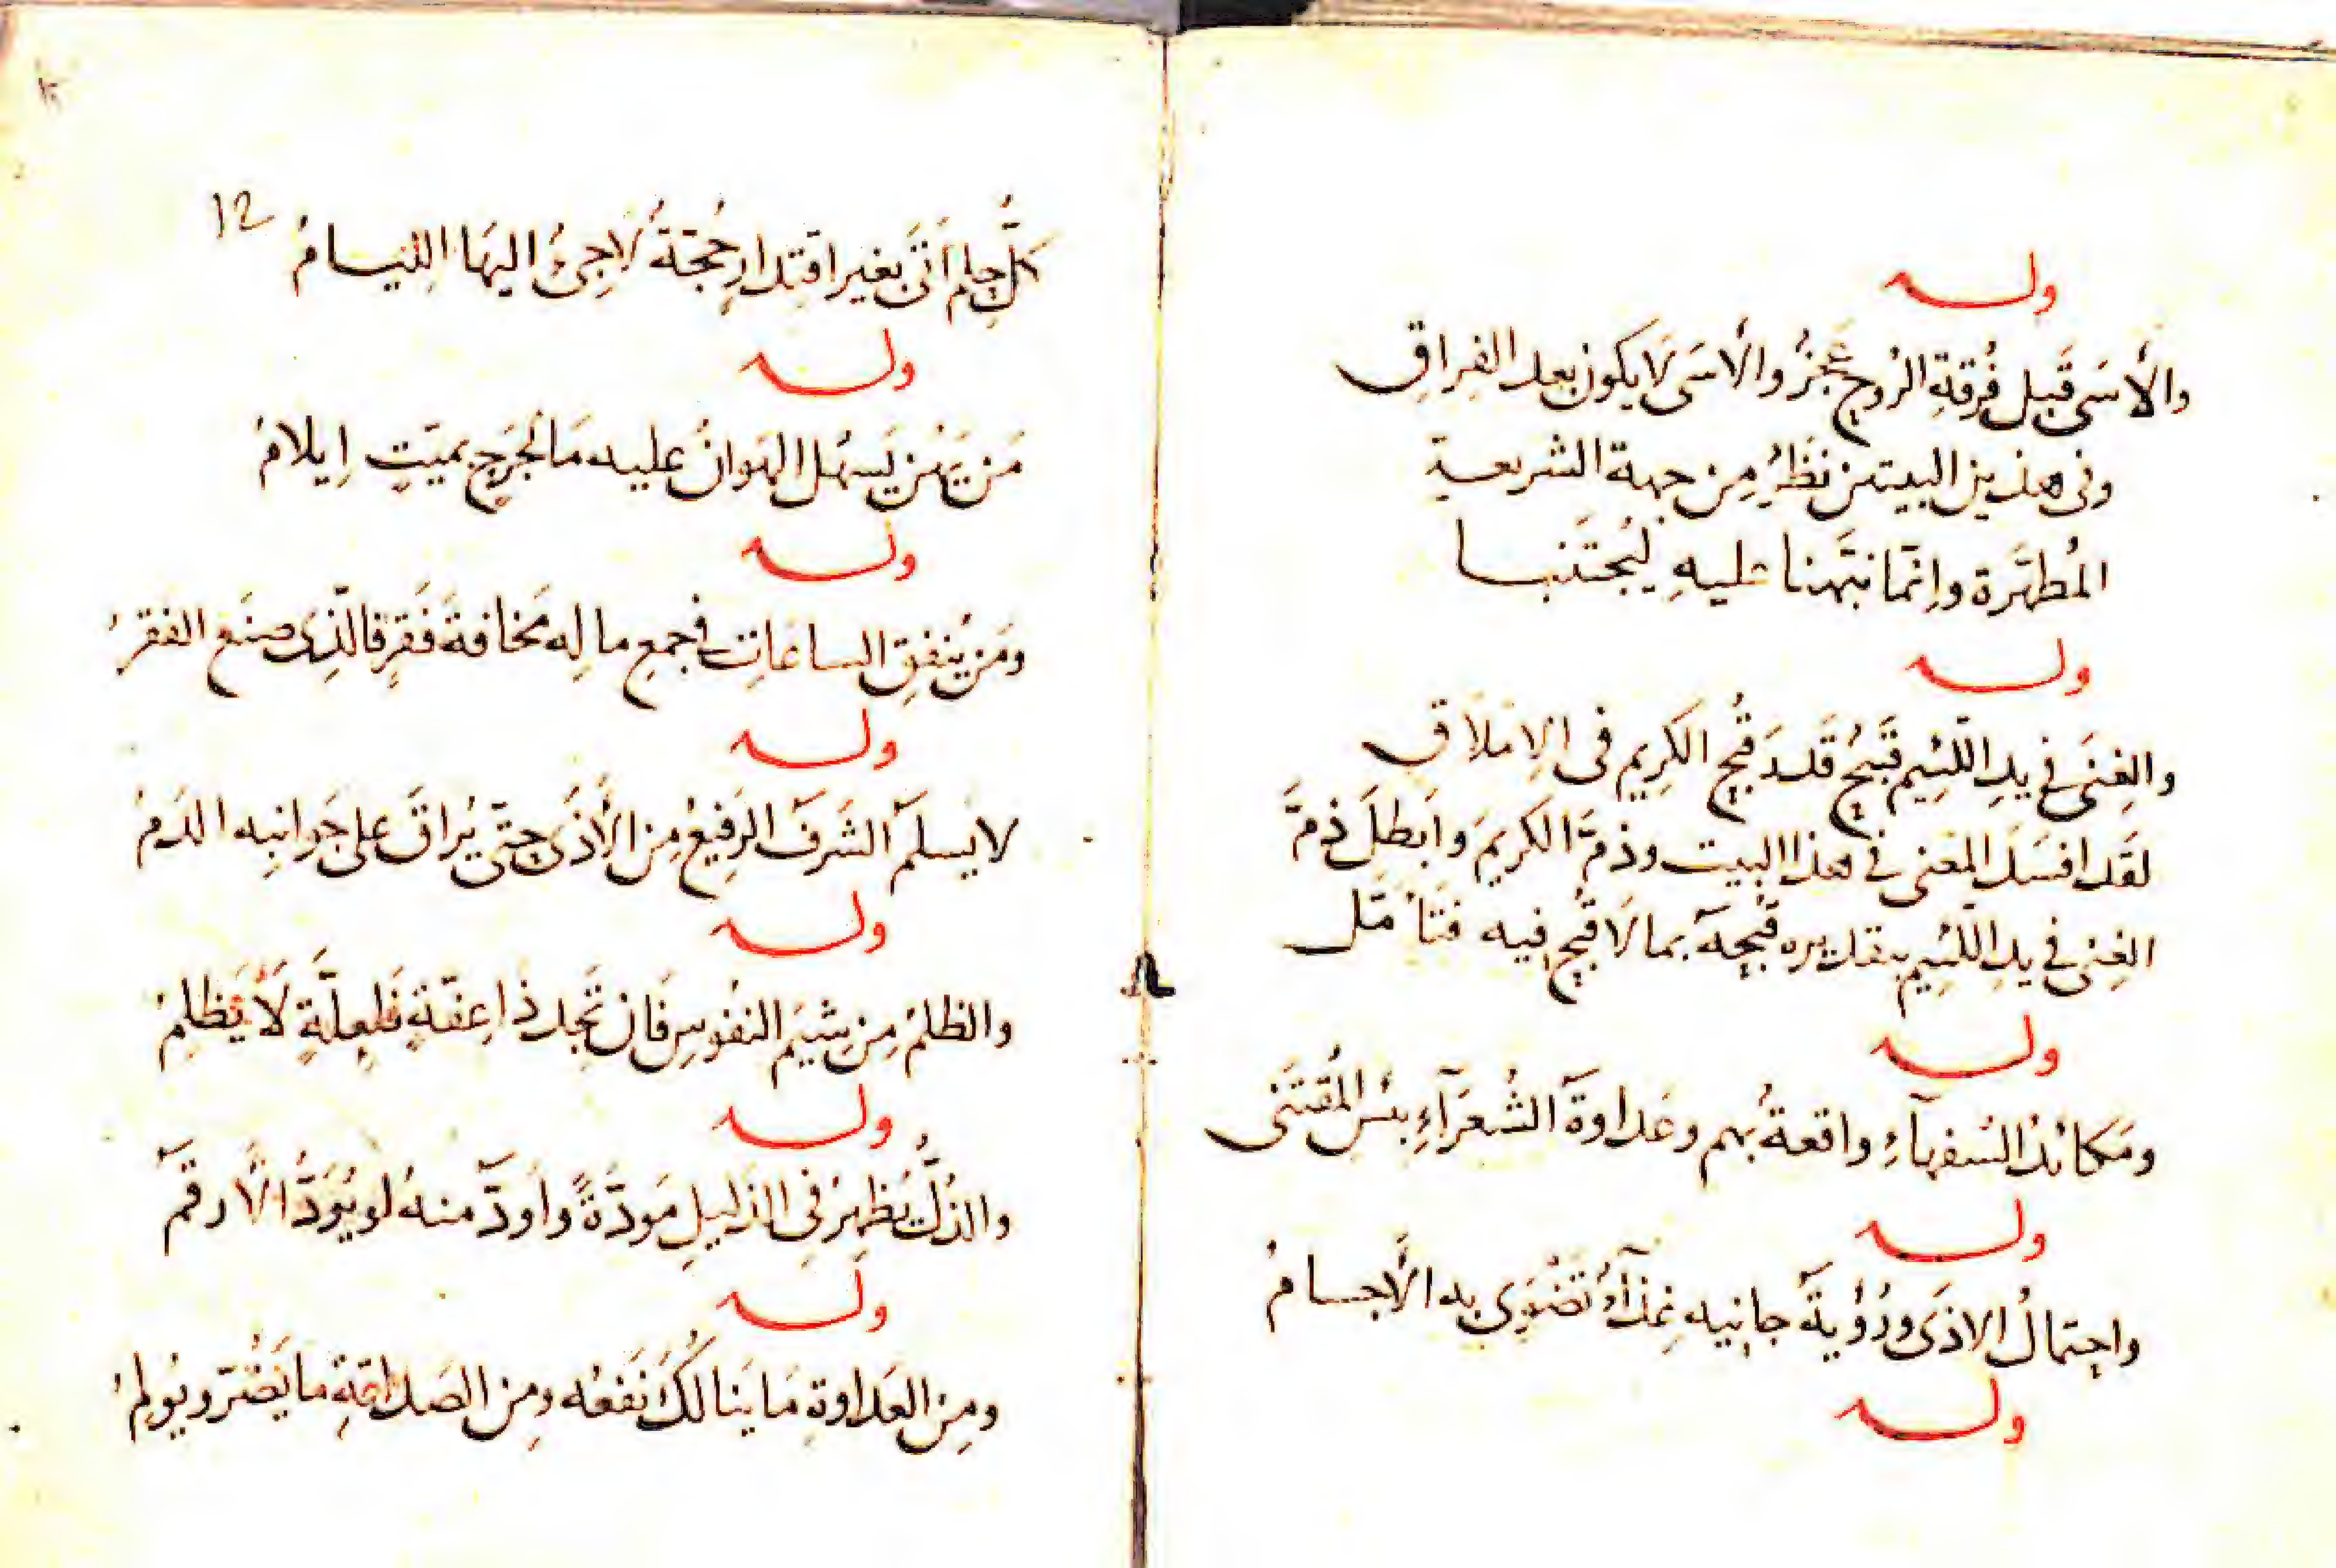 وله
والأسَى قَبل فُرقةِ الرُوح عَجزُ والأسَى لَا يكون بعد الفِراقِ
وفى هذين البيتين نَظَرُ مِن جهة الشريعة
المُطهَّرة وانِمَّا نبَّهنا عليهِ ليُجتَنبا
وله
والغِنَى فى يدِ اللَّئِيم قَبيُح قَدرَ قُبحِ الكَرِيم فى الإملَاقِ
لقَد افسَدَ المعَنى فى هذا البيت وذمَّ الكريمَ وابَطلَ ذمَّ
الغِنى فى يدِ اللَّئِيم بتقديره قُبحِهَ بما لَا قُبحِ فيه فتَأمّل
وله
ومَكائدُ السُفهآءِ واقعةُ بهم وعَداوةَ الشُعَرَآءِ بئسَ المُقتَنَى
وله
واحِتمالُ الاذَى ورُؤيةَ جانِيه غِذآءُ تَضْوَى به الأجسامُ
وله
12
كلُّ حِلم أتَى بغير اقتِدارٍ حُجَّةُ لاجِئُ اليهَا اللِئيامُ
وله
مَن يَهُن يَسهُل الهَوانُ عليه مَا لُجرَحٍ بميّتٍ إِيلامُ
وله
ومَن يُنفقِ الساعَاتِ فى جمعِ مالِه مَخافةَ فَقرٍ فالّذِى صنَع الفقرُ
وله
لا يسلمَ الشَرفَ الرَفيعُ مِن الأَذَى حتّى يُراقَ على جَوانبِه الدَمُ
وله
والظلمُ مِن شِيَم النفُوسِ فَان تَجِد ذا عِفّةٍ فَلعِلَّةٍ لَا يَظلِمُ
وله
والذُلُّ يُظهِرُ فِى الذليلِ مَودّةً واَودّ منهُ لو يُوَدُّ الأَرقَمَ
وله
ومِن العَداوةِ مَا ينَالكُ نَفعُه ومِن الصَداقةِ ما يَضُرّ ويُولِمُ